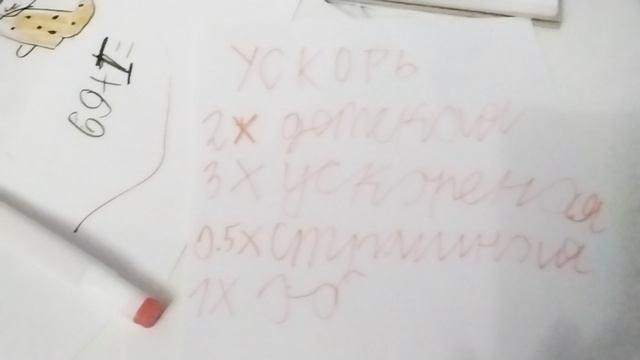 69+1=
УСКОРЬ
2х детская
3х ускоренья
0.5х страшная
1х